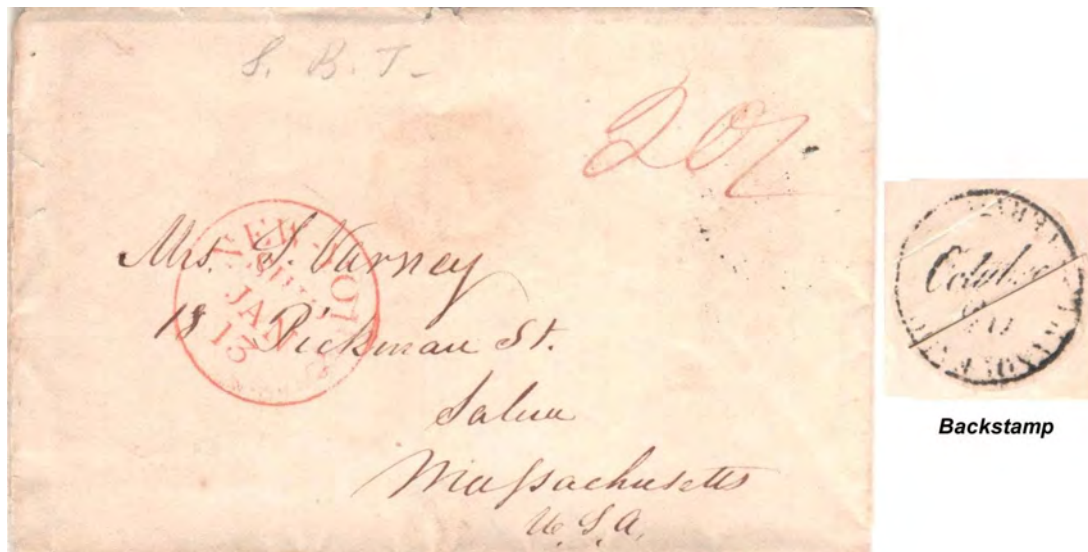 S. B. T.
NEW-YO
SHIP
JAN
13
Mrs. S. Varney
18 Pickman St.
Salem
Massachusetts
U.S.A.
Backstamp